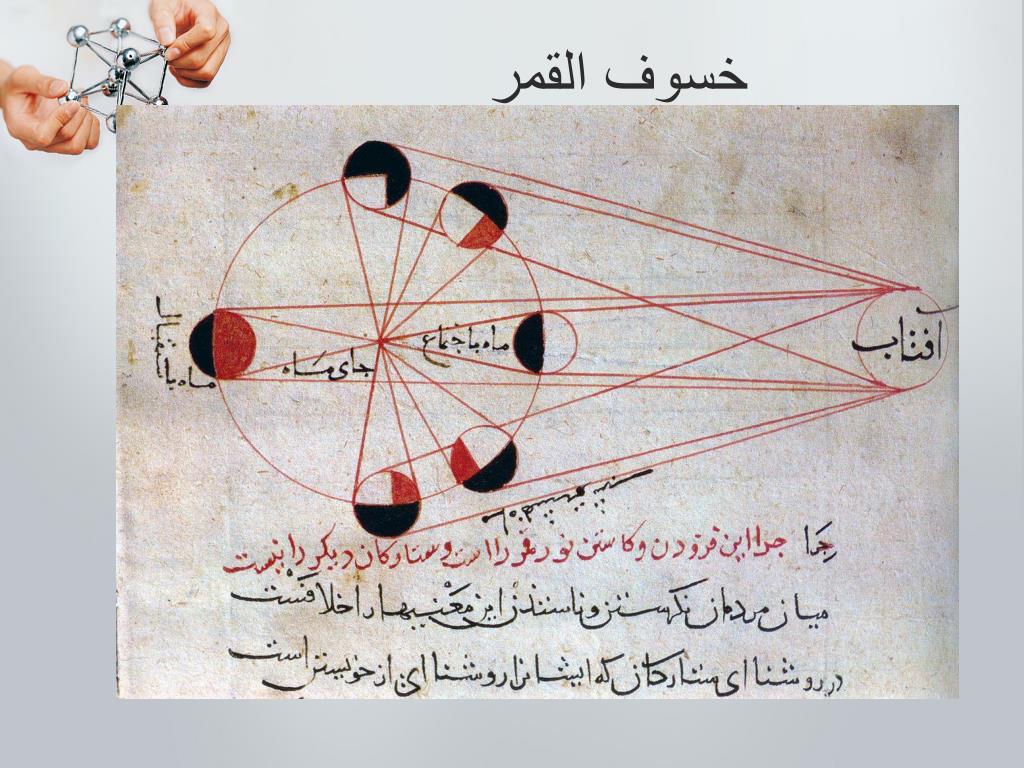 خسوف القمر
افتاب
ماه باجتماع
جای ماه
ماه باستقبال
چرا این فزودن و کاستن نور قمر را است و ستارکان دیکر را نیست
میان مردمان نکرستن این معنیها را خلافست
در روشنا ای ستارکان که ایشانرا روشنا ای از خویشتن است